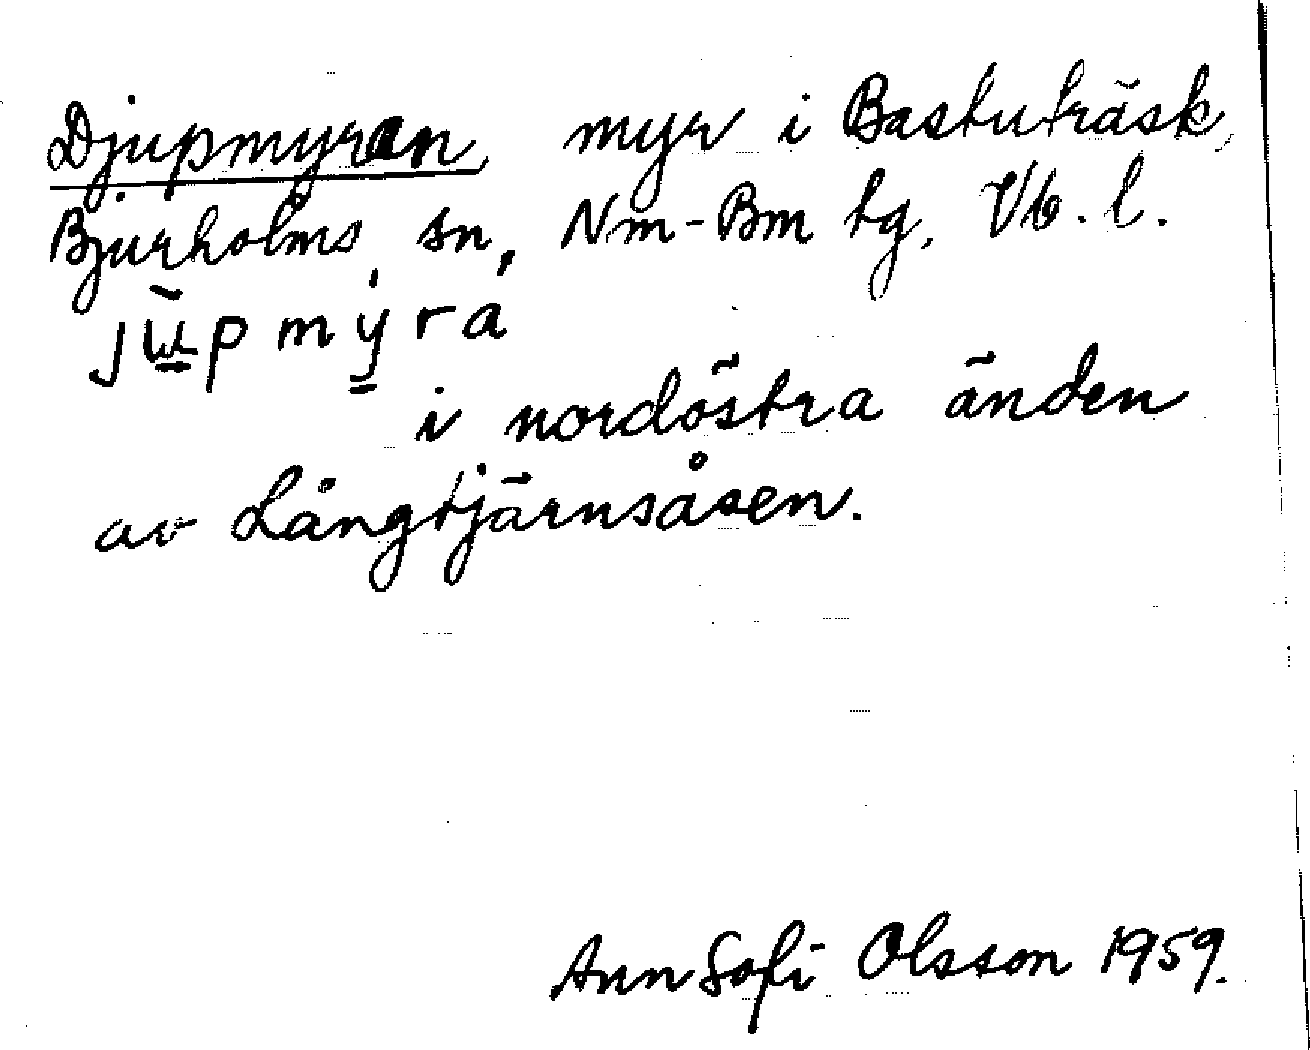 Djupmyran, myr i Bastuträsk,
Bjurholms sn, Nm-Bm tg, Vb. l.
jʉ̀pmýra
i nordöstra änden
av Långtjärnsåsen.
Ann Sofi Olsson 1959.